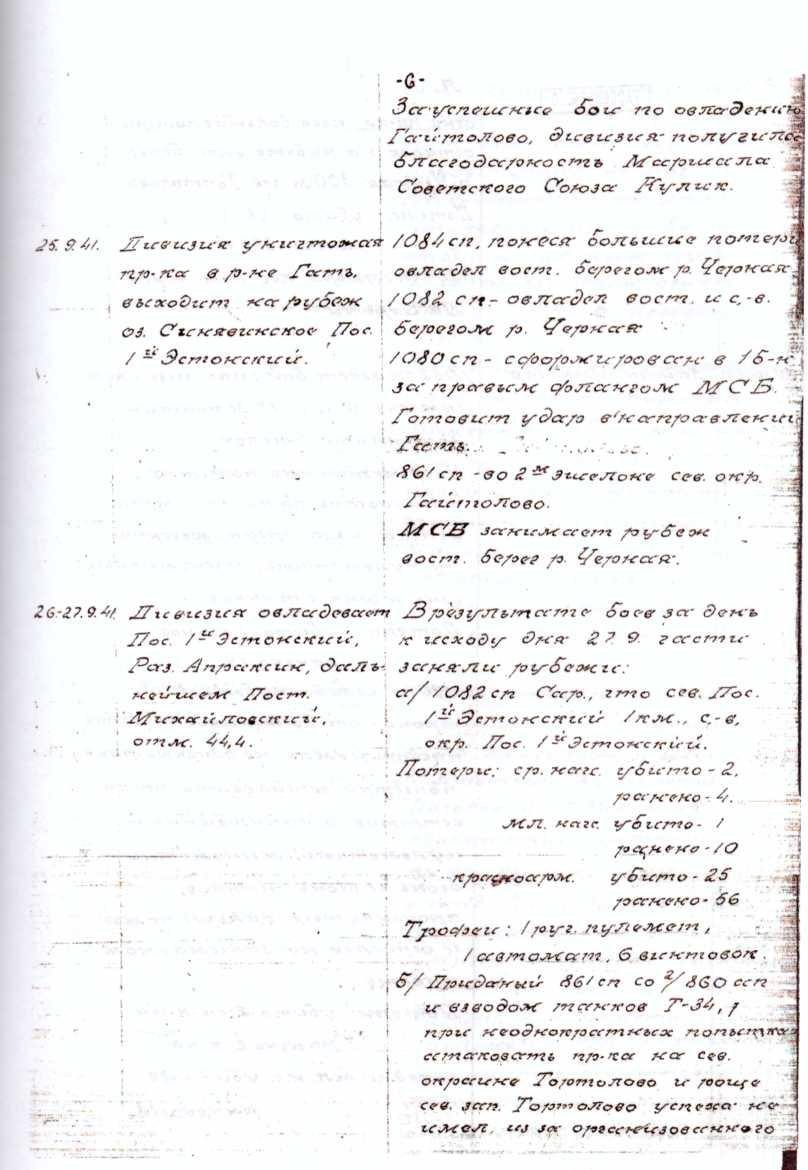 -6-
За успешные бои по овладению
Гайтолово, дивизия получила
благодарность Маршала
Советского Союза Кулик.
25.9.41. Дивизия уничтожая
пр-ка в р-не Гать,
выходит на рубеж
оз. Синявинское Пос.
1ый Эстонский.
1084 сп, понеся большие потери
овладел вост. берегом р. Черная
1082 сп - овладел вост. и с,-в.
берегом р. Черная
1080 сп - сформирован в 1б-н
за правым флангом МСБ.
Готовит удар в направлении
Гать.
861 сп - во 2м эшелоне сев. окр.
Гайтолово.
МСБ занимает рубеж
вост. берег р. Черная.
26-27.9.41. Дивизия овладевает
Пос. 1й Эстонский,
Раз. Апраксин, даль-
нейшем Пост.
Михайловский,
отм. 44,4.
В результате боев за день
к исходу дня 27.9. части
заняли рубежи:
а/ 1082 сп Сар., что сев. Пос.
1й Эстонский 1км., с,-в,
окр. Пос. 1й Эстонский.
Потери: ср. нач. убито - 2,
ранено - 4.
мл. нач. убито - 1
ранено - 10
красноарм. убито - 25
ранено - 56
Трофеи: 1 руч. пулемет,
1 автомат, 6 винтовок.
б/ Приданый 861 сп со 2/860 сп
и взводом танков Т-34,
при неоднократных попытках
атаковать пр-ка на сев.
окраине Тортолово и роще
сев. зап. Тортолово успеха не
имел, из за организованного